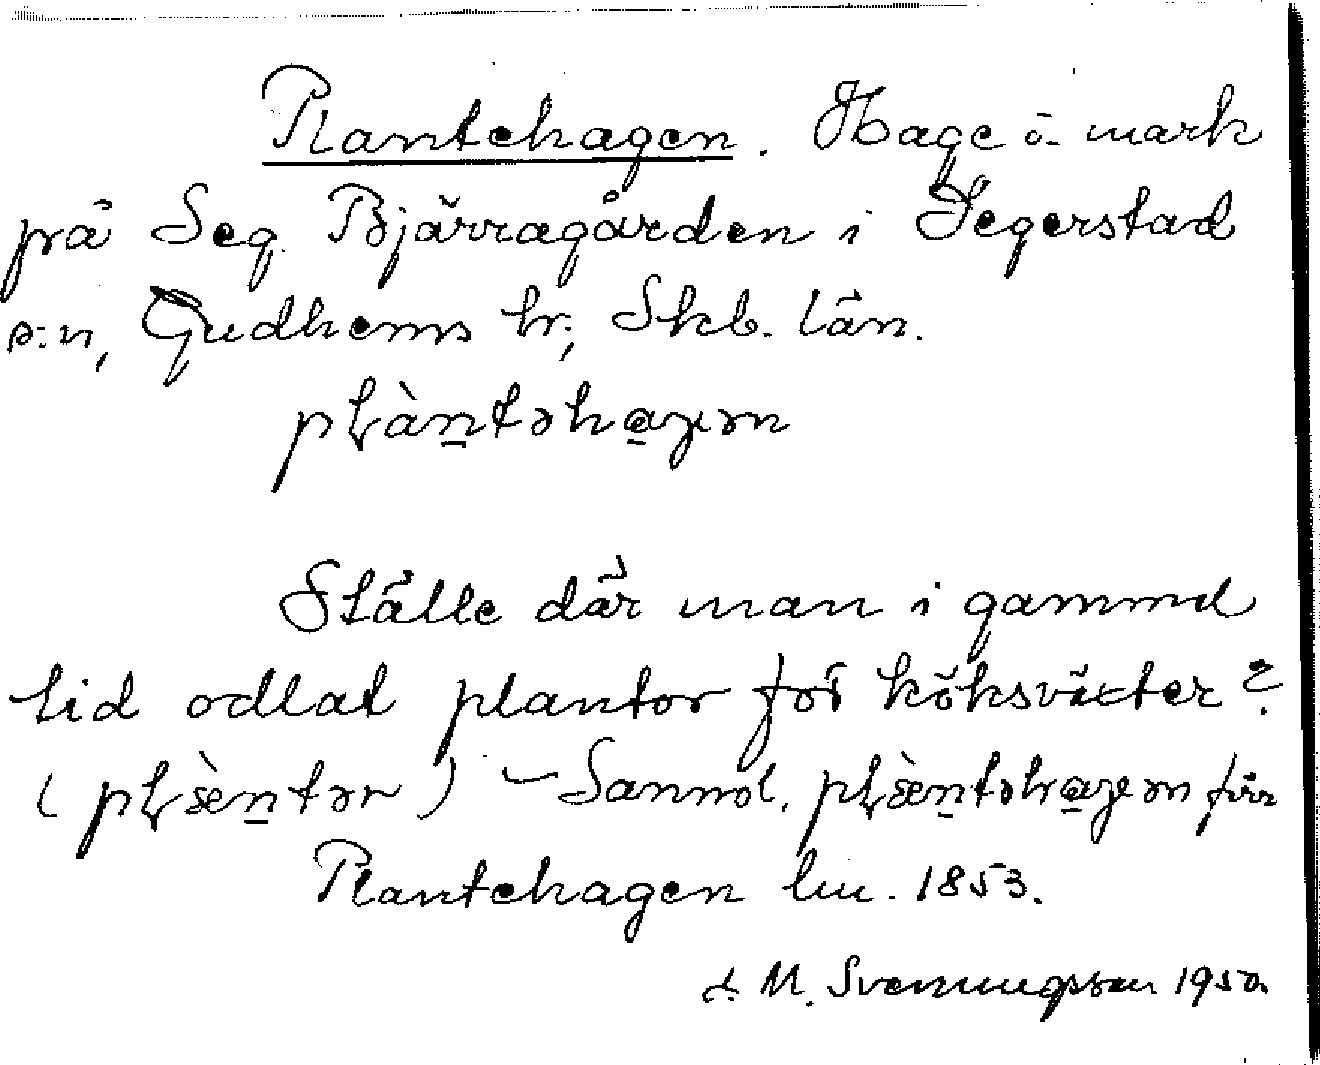 Plantehagen. Hage o. mark
på Seg. Bjärragården i Segerstad
s:n, Gudhems hr; Skb. län.
pḷàn̠təha̠gen
Ställe där man i gammal
tid odlat plantor för köksväxter?
(pḷæ̀n̠tər) – Sannol. pḷæ̀n̠təha̠gen förr
Plantehagen lm. 1853.
d. M. Svenungsson 1950.